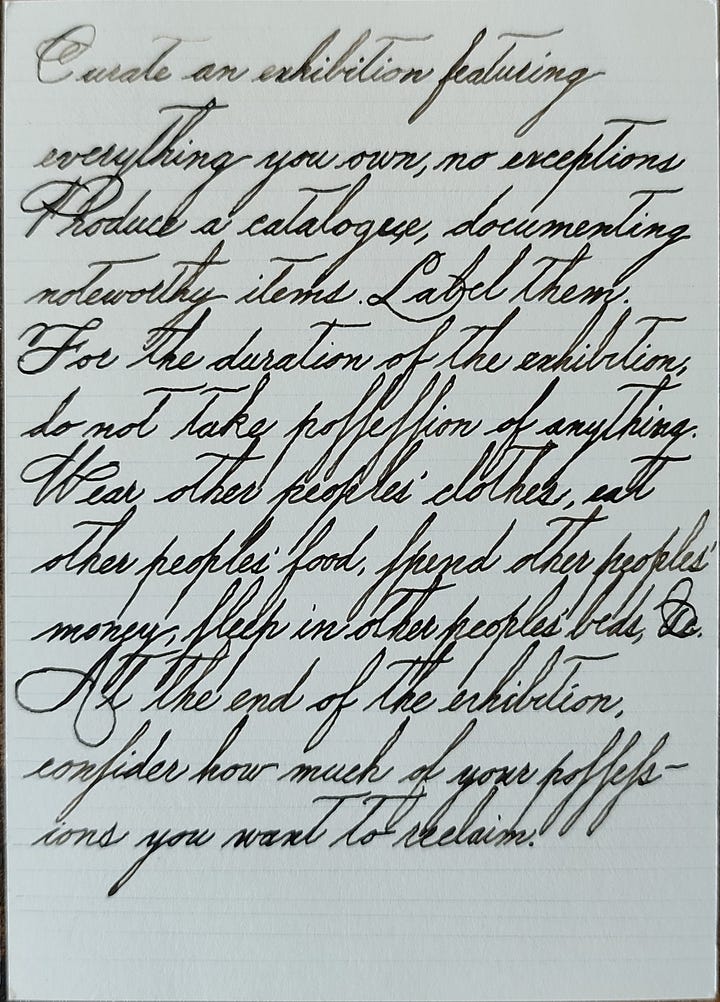 Curate an exhibition featuring
everything you own, no exceptions
Produce a catalogue, documenting
noteworthy items. Label them.
For the duration of the exhibition,
do not take poſſeſſion of anything.
Wear other peoples' clothes, eat
other peoples' food, ſpend other peoples'
money, ſleep in other peoples' beds, &c.
At the end of the exhibition,
conſider how much of your poſſeſs-
ions you want to reclaim.